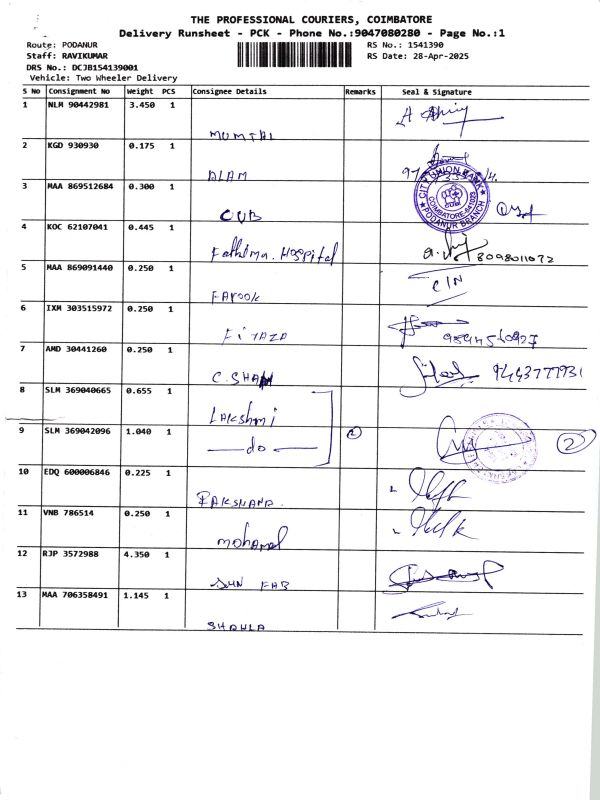 THE PROFESSIONAL COURIERS, COIMBATORE
Delivery Runsheet - PCK - Phone No.:9047080280 - Page No.:1
Route: PODANUR RS No.: 1541390
Staff: RAVIKUMAR RS Date: 28-Apr-2025
DRS No.: DCJB154139001
Vehicle: Two Wheeler Delivery
S No Consignment No Weight PCS Consignee Details Remarks Seal & Signature
1 NLM 90442981 3.450 1
MUMTAL
2 KGD 930930 0.175 1
ALAM
3 MAA 869512684 0.300 1
CUB
CITY UNION BANK
COIMBATORE-641023
CUB
PODANUR BRANCH
4 KOC 62107041 0.445 1
Fathima. Hospital 8098011072
5 MAA 869091440 0.250 1
FAROOK
6 IXM 303515972 0.250 1
FIYAZA
7 AMD 30441260 0.250 1
C.SHAM 9443777931
8 SLM 369040665 0.655 1
LAKSHMI
9 SLM 369042096 1.040 1
do 2 2
10 EDQ 600006846 0.225 1
RAKSHANA.
11 VNB 786514 0.250 1
mohamed
12 RJP 3572988 4.350 1
SUN FAB
13 MAA 706358491 1.145 1
SHAHLA